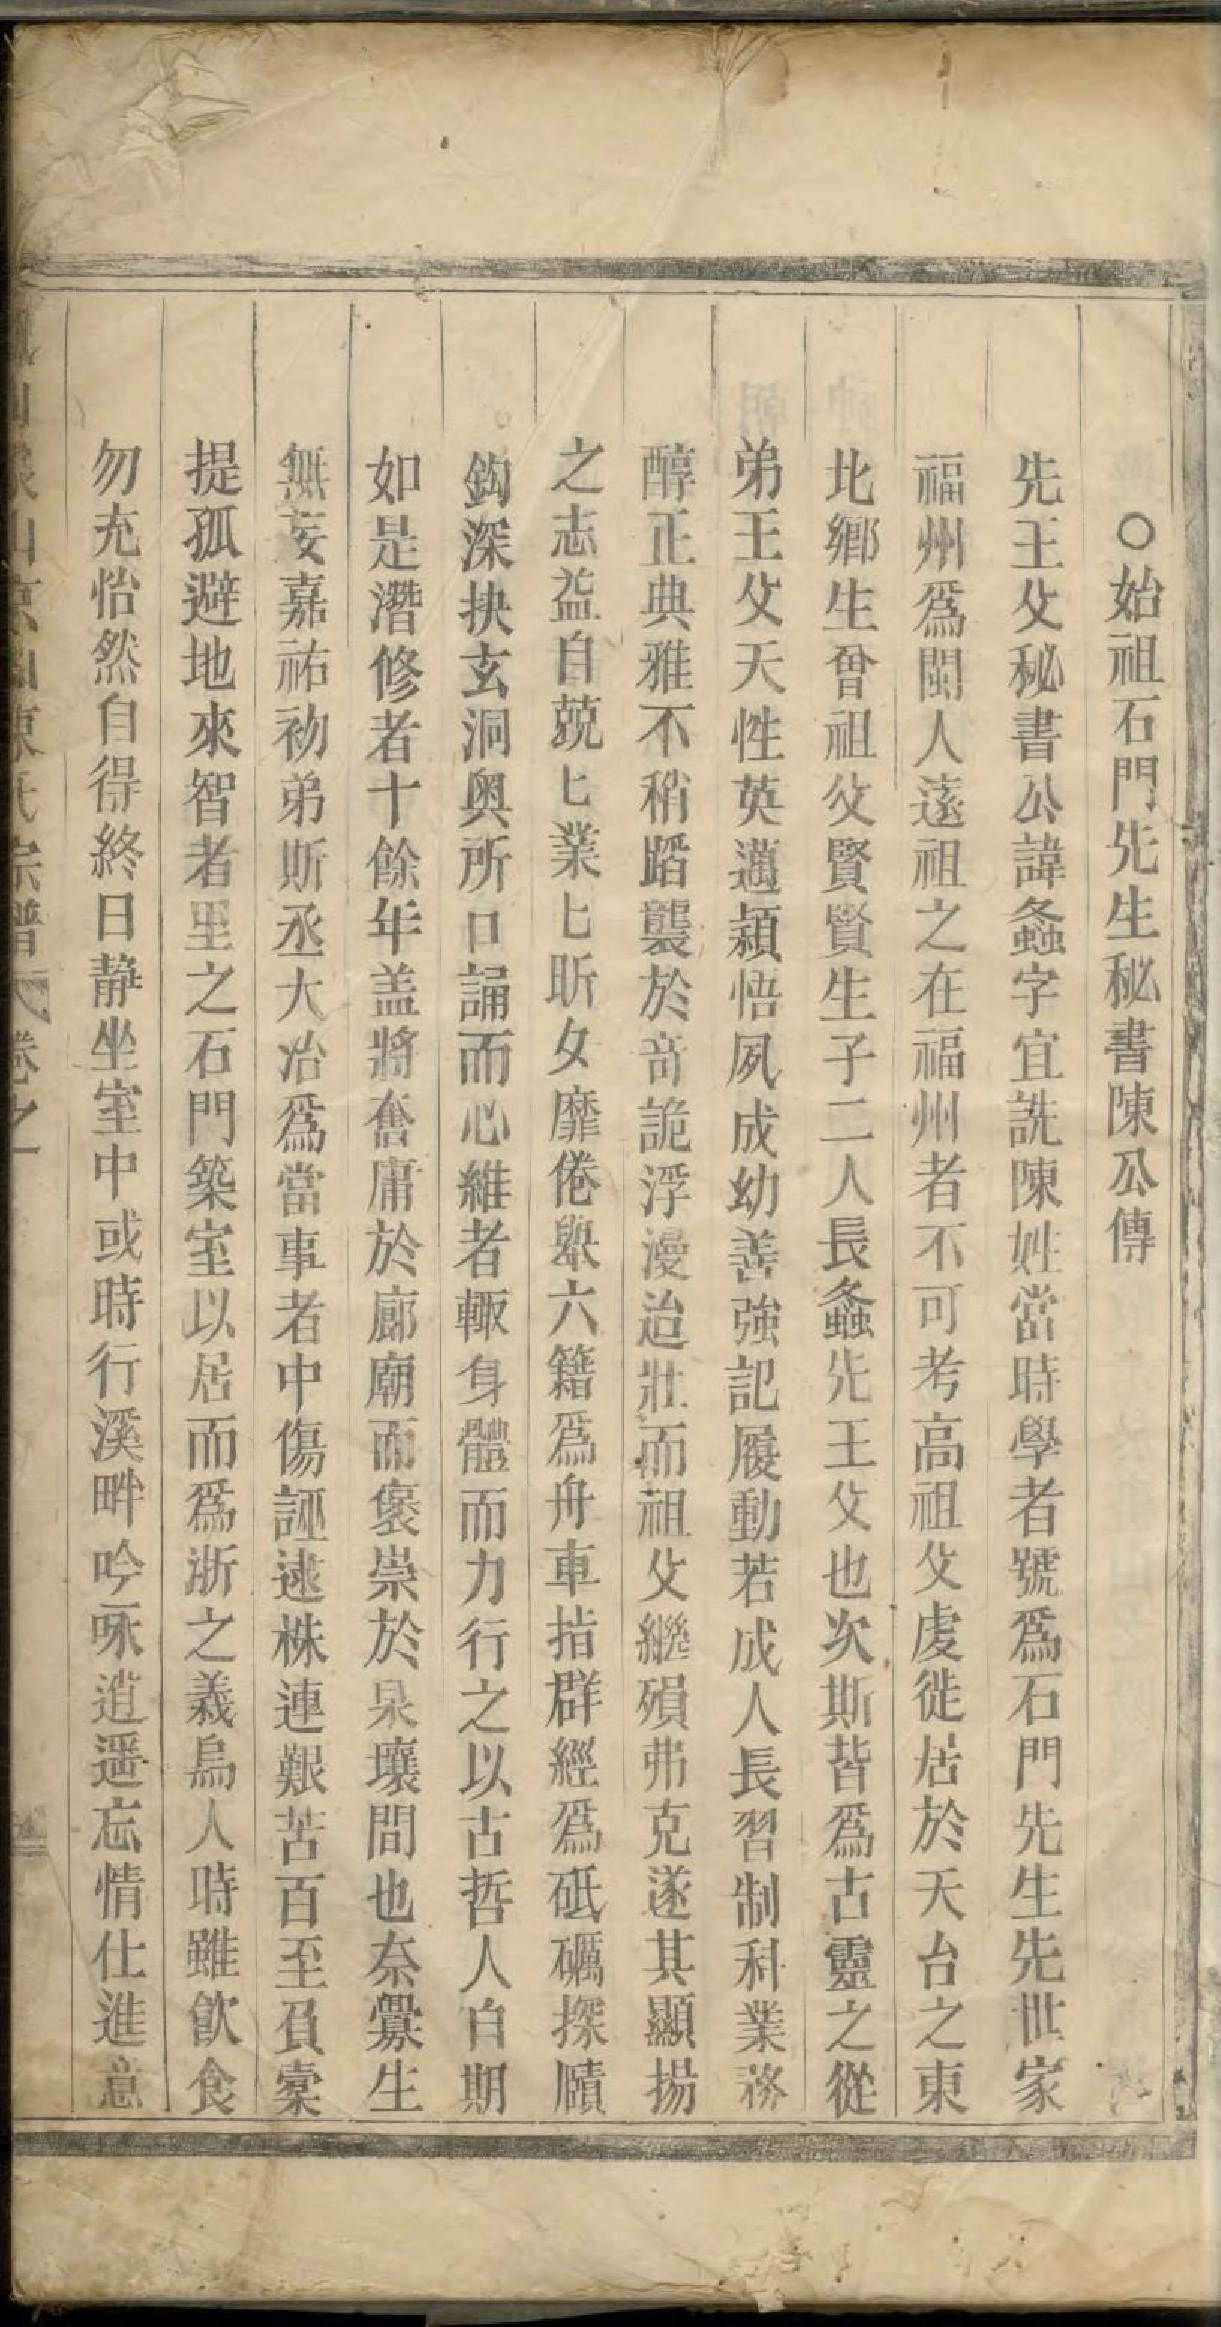 ○始祖石門先生秘書陳公傳
先王父秘書公諱螽字宜詵陳姓當時學者號爲石門先生先世家
福州爲閩人遠祖之在福州者不可考高祖父虔徙居於天台之東
北鄉生曾祖父賢賢生子二人長螽先王父也次斯皆爲古靈之從
弟王父天性英邁穎悟夙成幼善強記履動若成人長習制科業務
醇正典雅不稍蹈襲於奇詭浮漫迨壯而祖父繼殞弗克遂其顯揚
之志益自兢匕業匕昕夕靡倦㪯六籍爲舟車指群經爲砥礪探賾
鈎深抉玄洞奥所口誦而心維者輙身體而力行之以古哲人自期
如是潛修者十餘年盖將奮庸於廊廟而褒崇於泉壤間也奈釁生
無妄嘉祐初弟斯丞大冶爲當事者中傷誣逮株連艱苦百至負橐
提孤避地來智者里之石門築室以居而爲浙之義烏人時雖飲食
勿充怡然自得終日静坐室中或時行溪畔吟咏逍遥忘情仕進意
宗譜 卷之